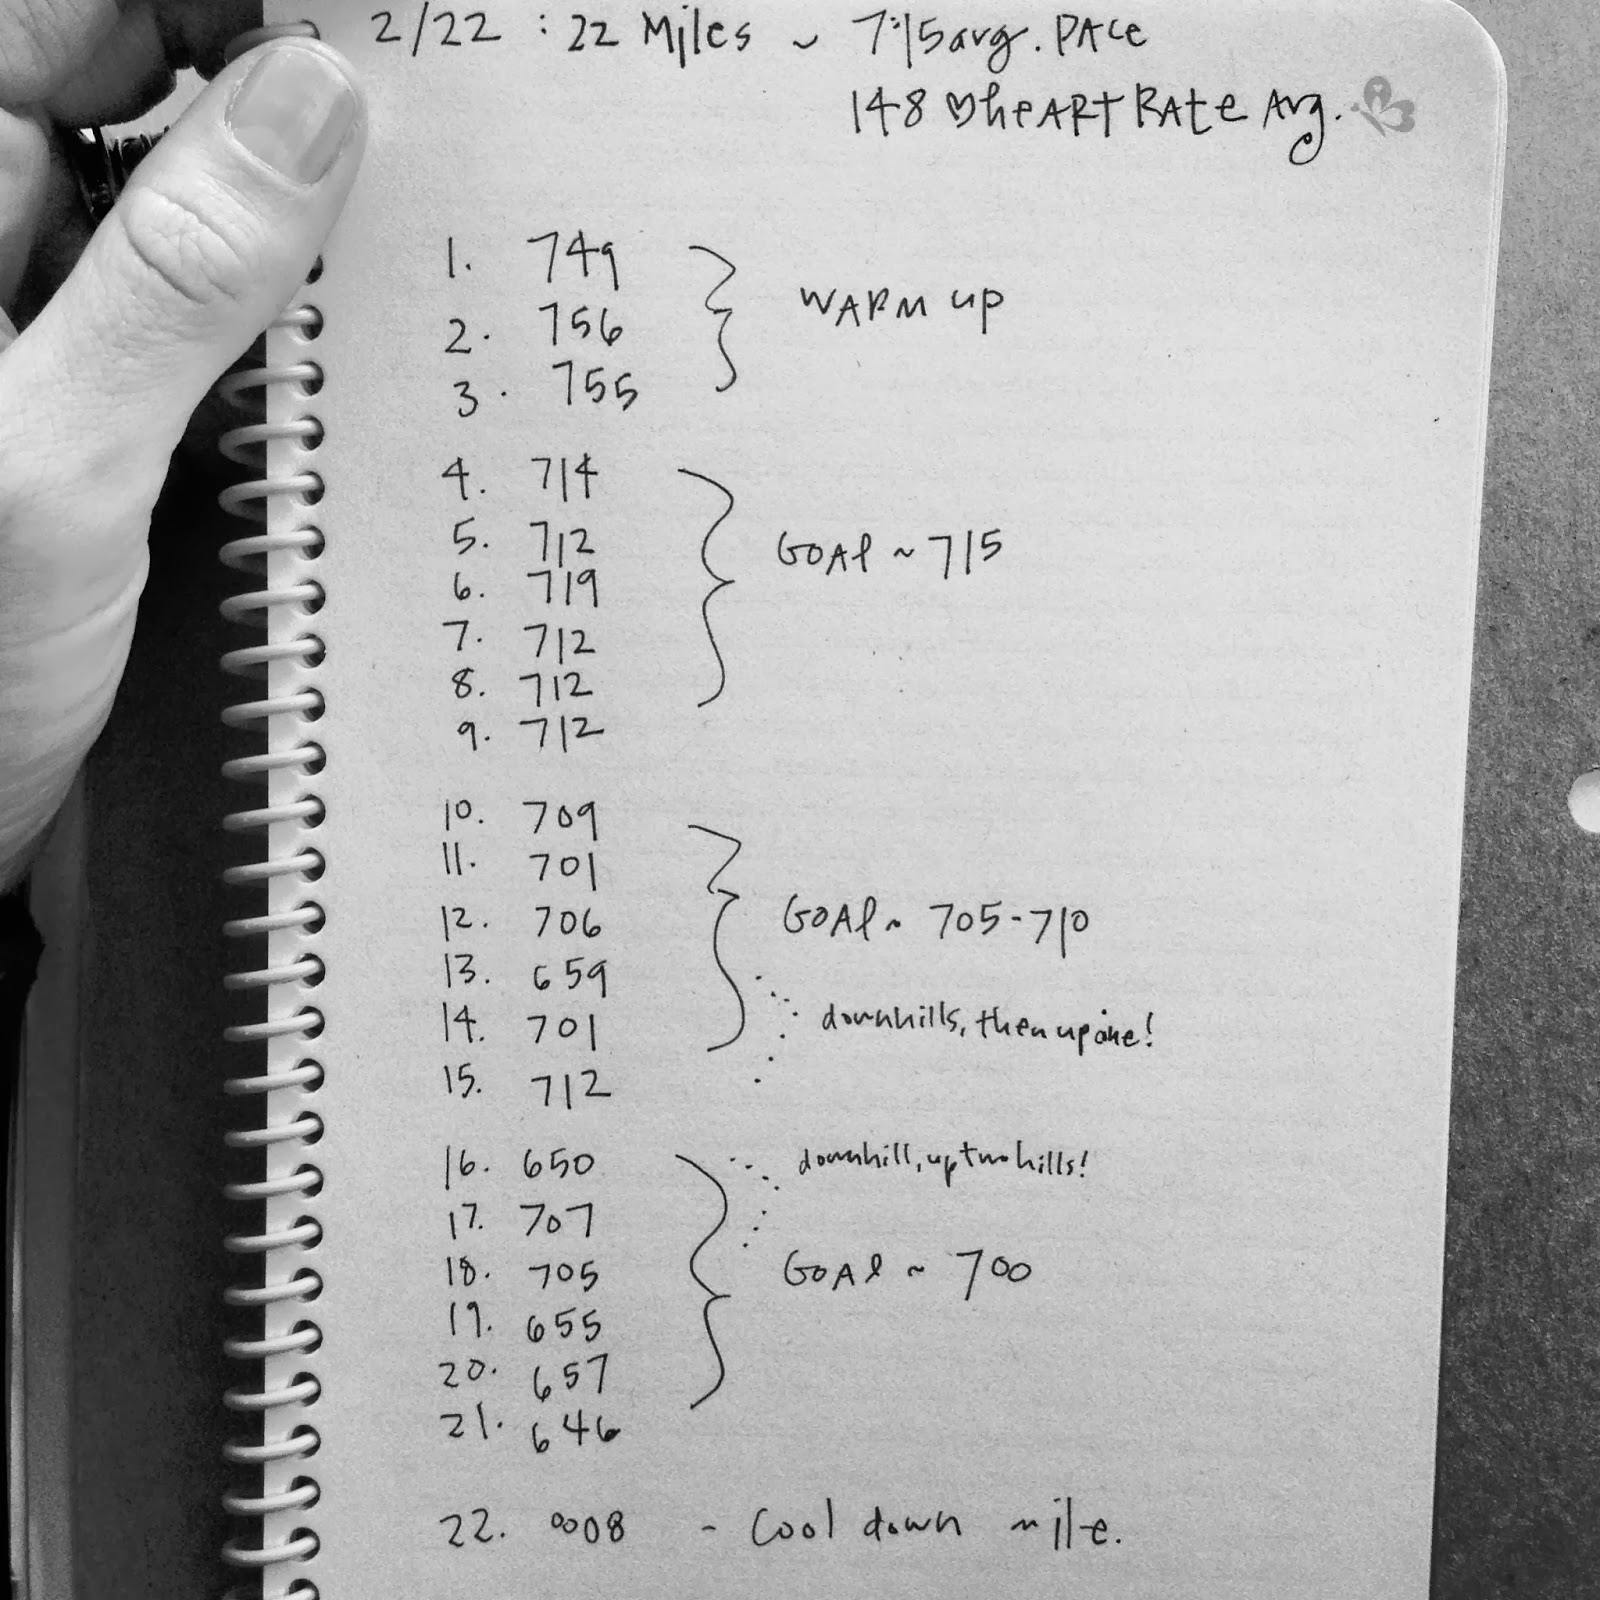 2/22 : 22 Miles ~ 7:15 avg. PACe
148 ♡heARt RAte Avg.
1. 749
2. 756
WARM up
3. 755
4. 714
5. 712
GOAl ~ 715
6. 719
7. 712
8. 712
9. 712
10. 709
11. 701
12. 706
GOAl ~ 705-710
13. 659
14. 701
downhills, then up one!
15. 712
16. 650
downhill, up two hills!
17. 707
18. 705
GOAl ~ 700
19. 655
20. 657
21. 646
22. 0008 - Cool down mile.